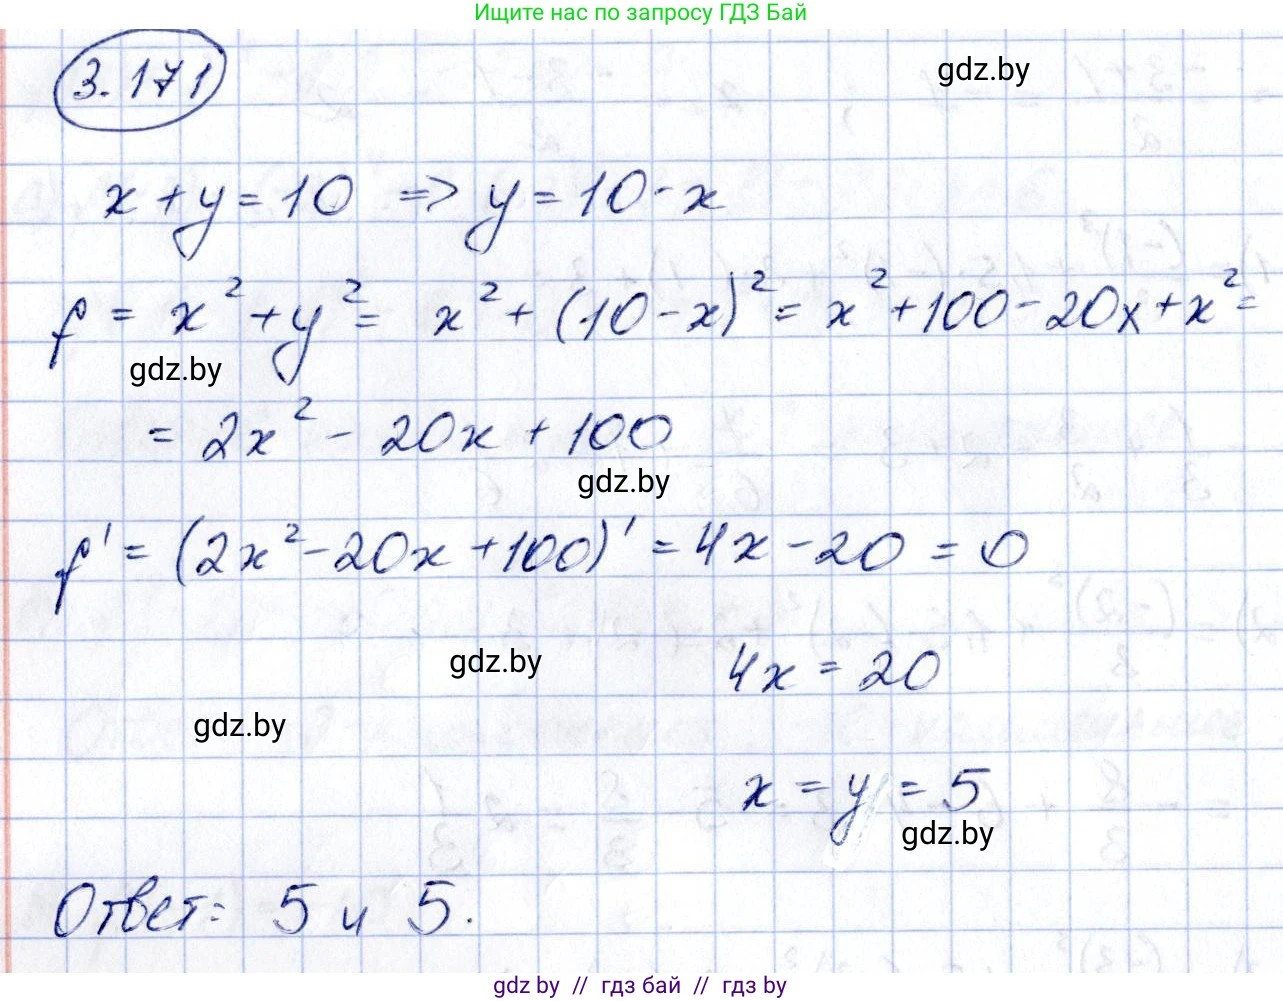 Ищите нас по запросу ГДЗ Бай
3.171
gdz.by
x + y = 10 => y = 10 - x
f = x² + y² = x² + (10 - x)² = x² + 100 - 20x + x² =
gdz.by
= 2x² - 20x + 100
gdz.by
f' = (2x² - 20x + 100)' = 4x - 20 = 0
gdz.by
4x = 20
gdz.by
x = y = 5
gdz.by
Ответ: 5 и 5.
gdz by // гдз бай // гдз by